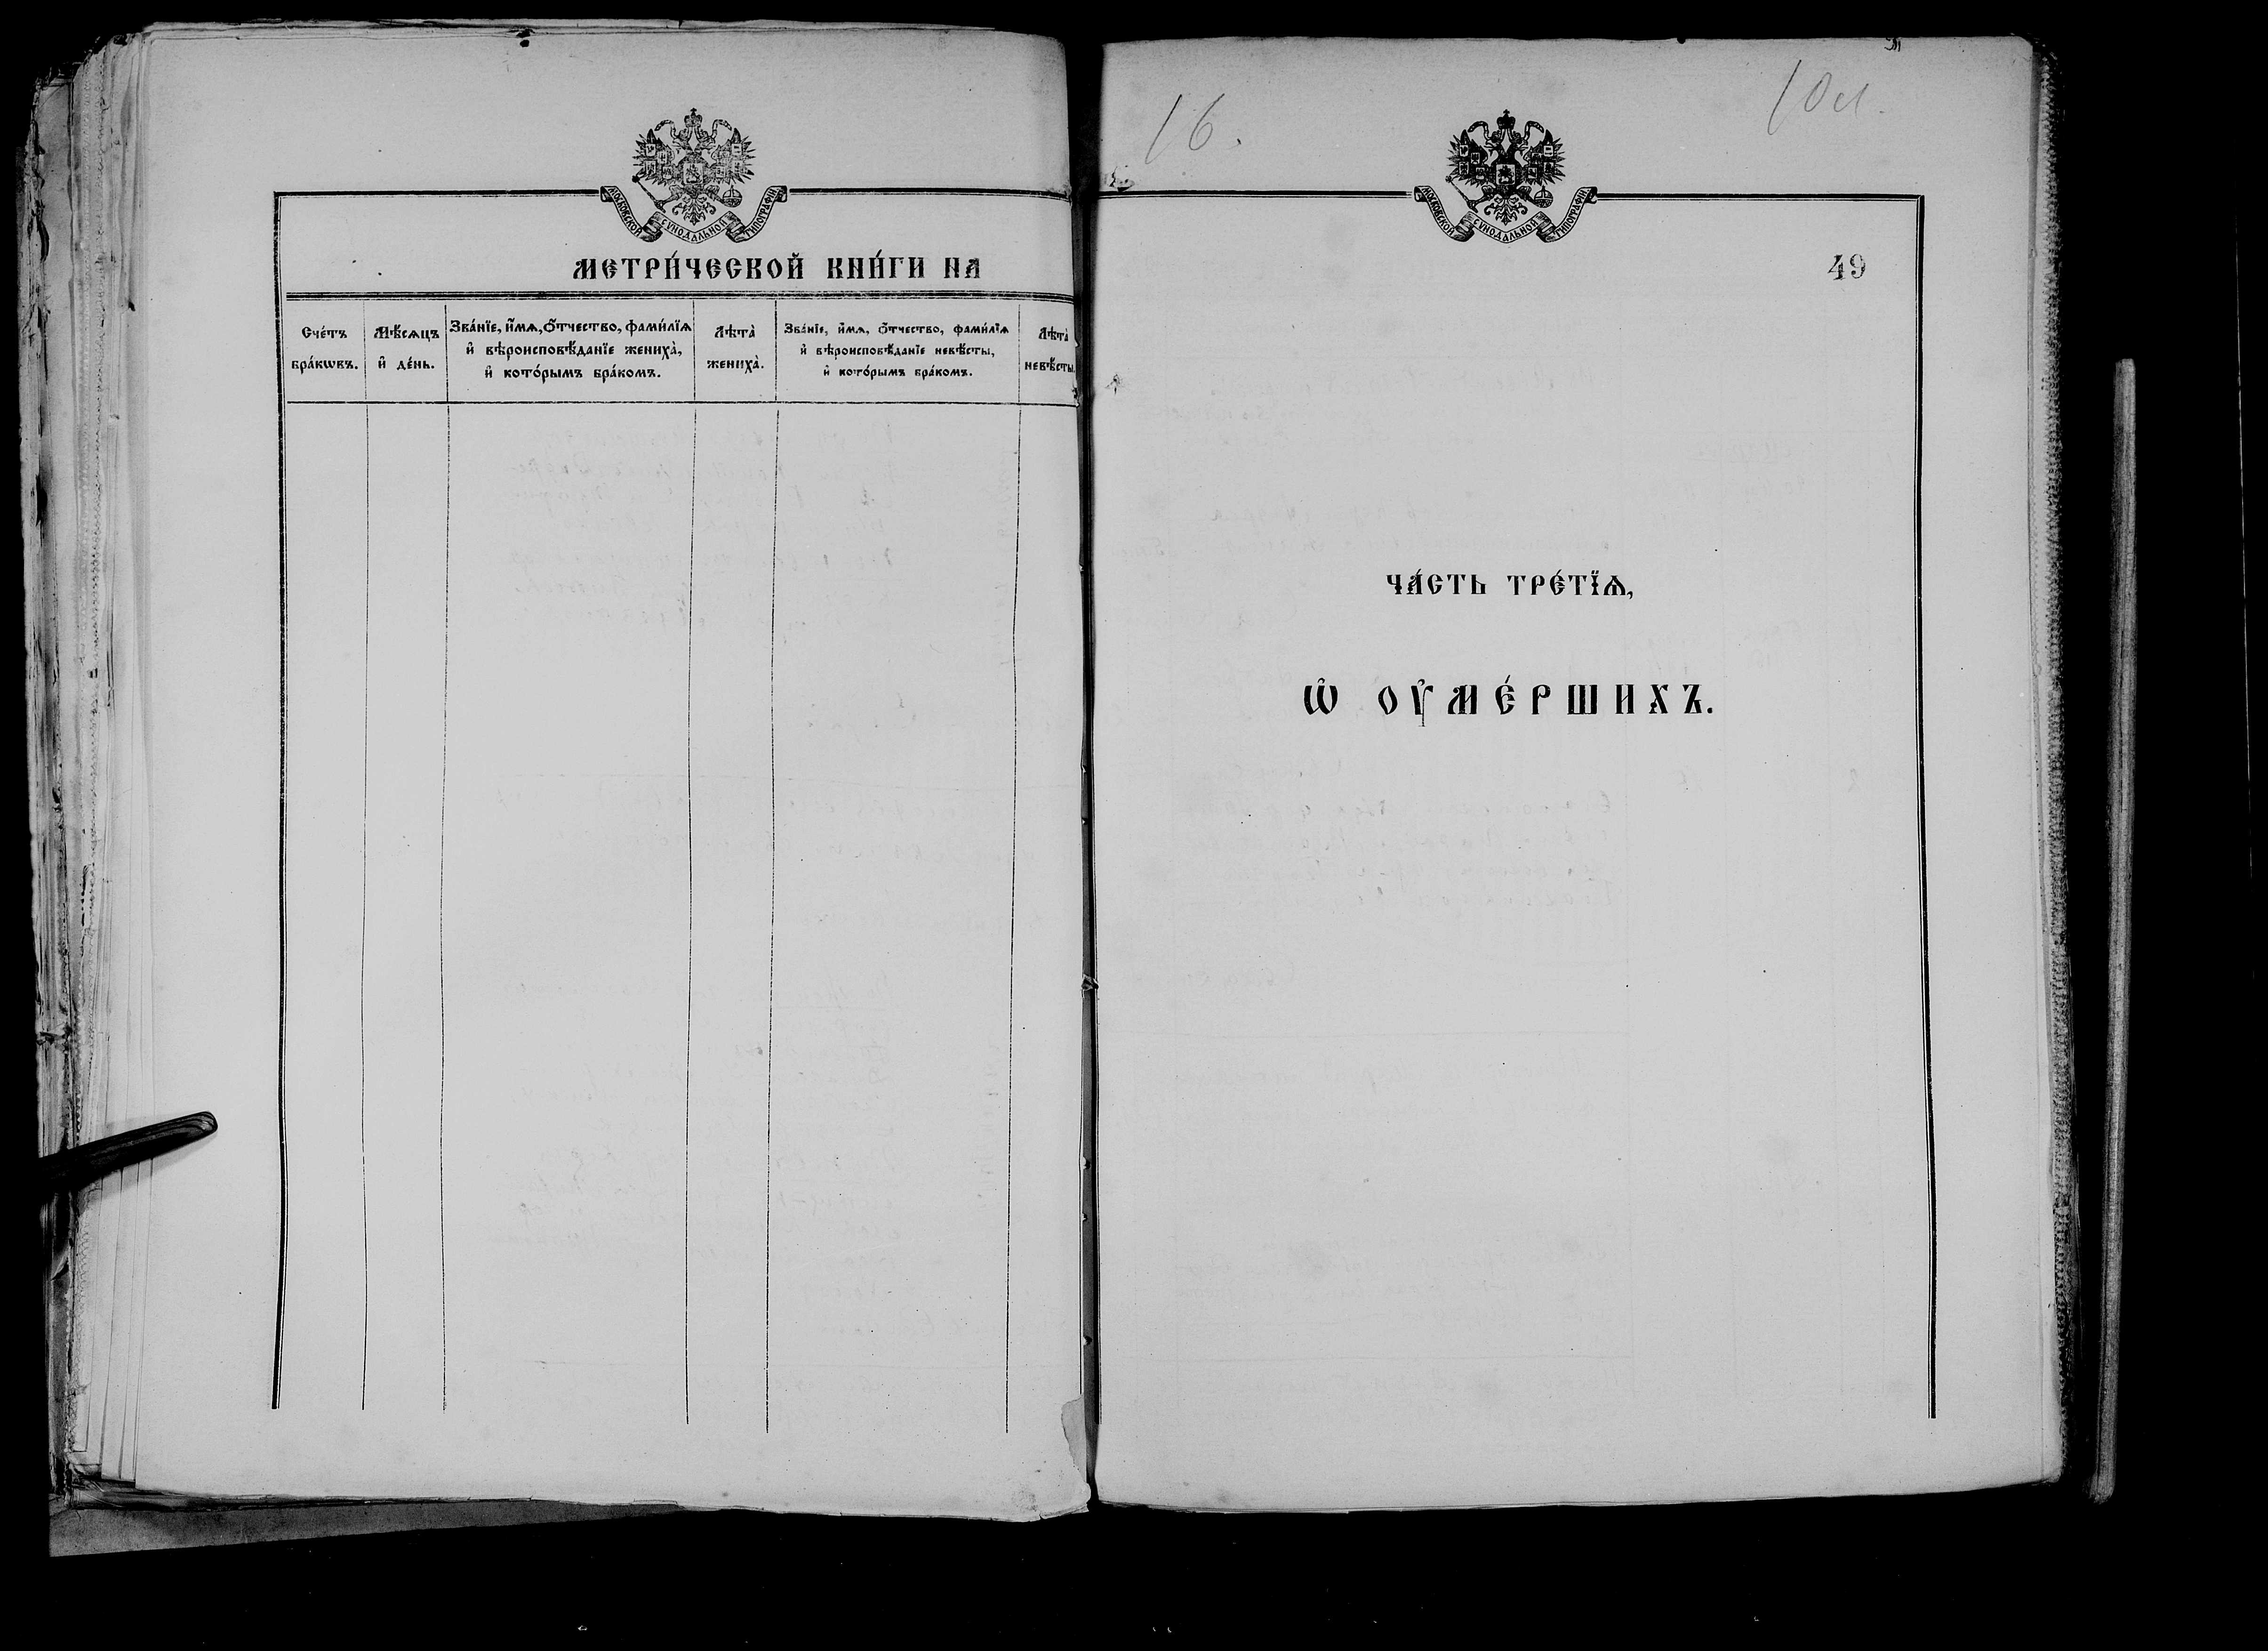 МОСКОВСКОЙ СѴНОДАЛЬНОЙ ТИПОГРАФІИ
МЕТРИ́ЧЕСКОЙ КНИ́ГИ НА
Сче́тъ бра́кѡвъ.
Мѣ́сѧцъ и҆ де́нь.
Зва́нїе, и҆́мѧ, ѻ҆́тчество, фами́лїѧ
и҆ вѣроисповѣ́данїе жениха̀,
и҆ кото́рымъ бра́комъ.
Лѣта̀ жениха̀.
Зва́нїе, и҆́мѧ, ѻ҆́тчество, фами́лїѧ
и҆ вѣроисповѣ́данїе невѣ́сты,
и҆ кото́рымъ бра́комъ.
Лѣта̀ невѣ́сты.
16.
10
МОСКОВСКОЙ СѴНОДАЛЬНОЙ ТИПОГРАФІИ
49
ЧА́СТЬ ТРЕ́ТЇѦ,
Ѡ҆ ОУ҆МЕ́РШИХЪ.